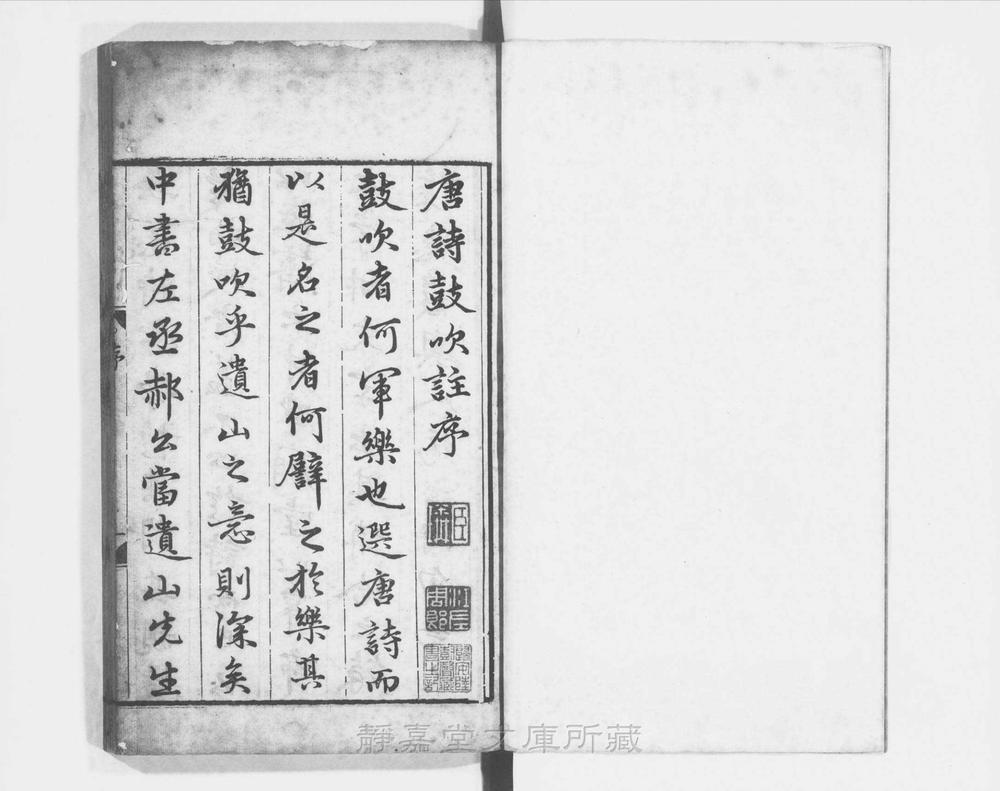 唐詩鼓吹註序
鼓吹者何軍樂也選唐詩而
以是名之者何譬之於樂其
猶鼓吹乎遺山之意則深矣
中書左丞郝公當遺山先生
序
靜嘉堂文庫所藏